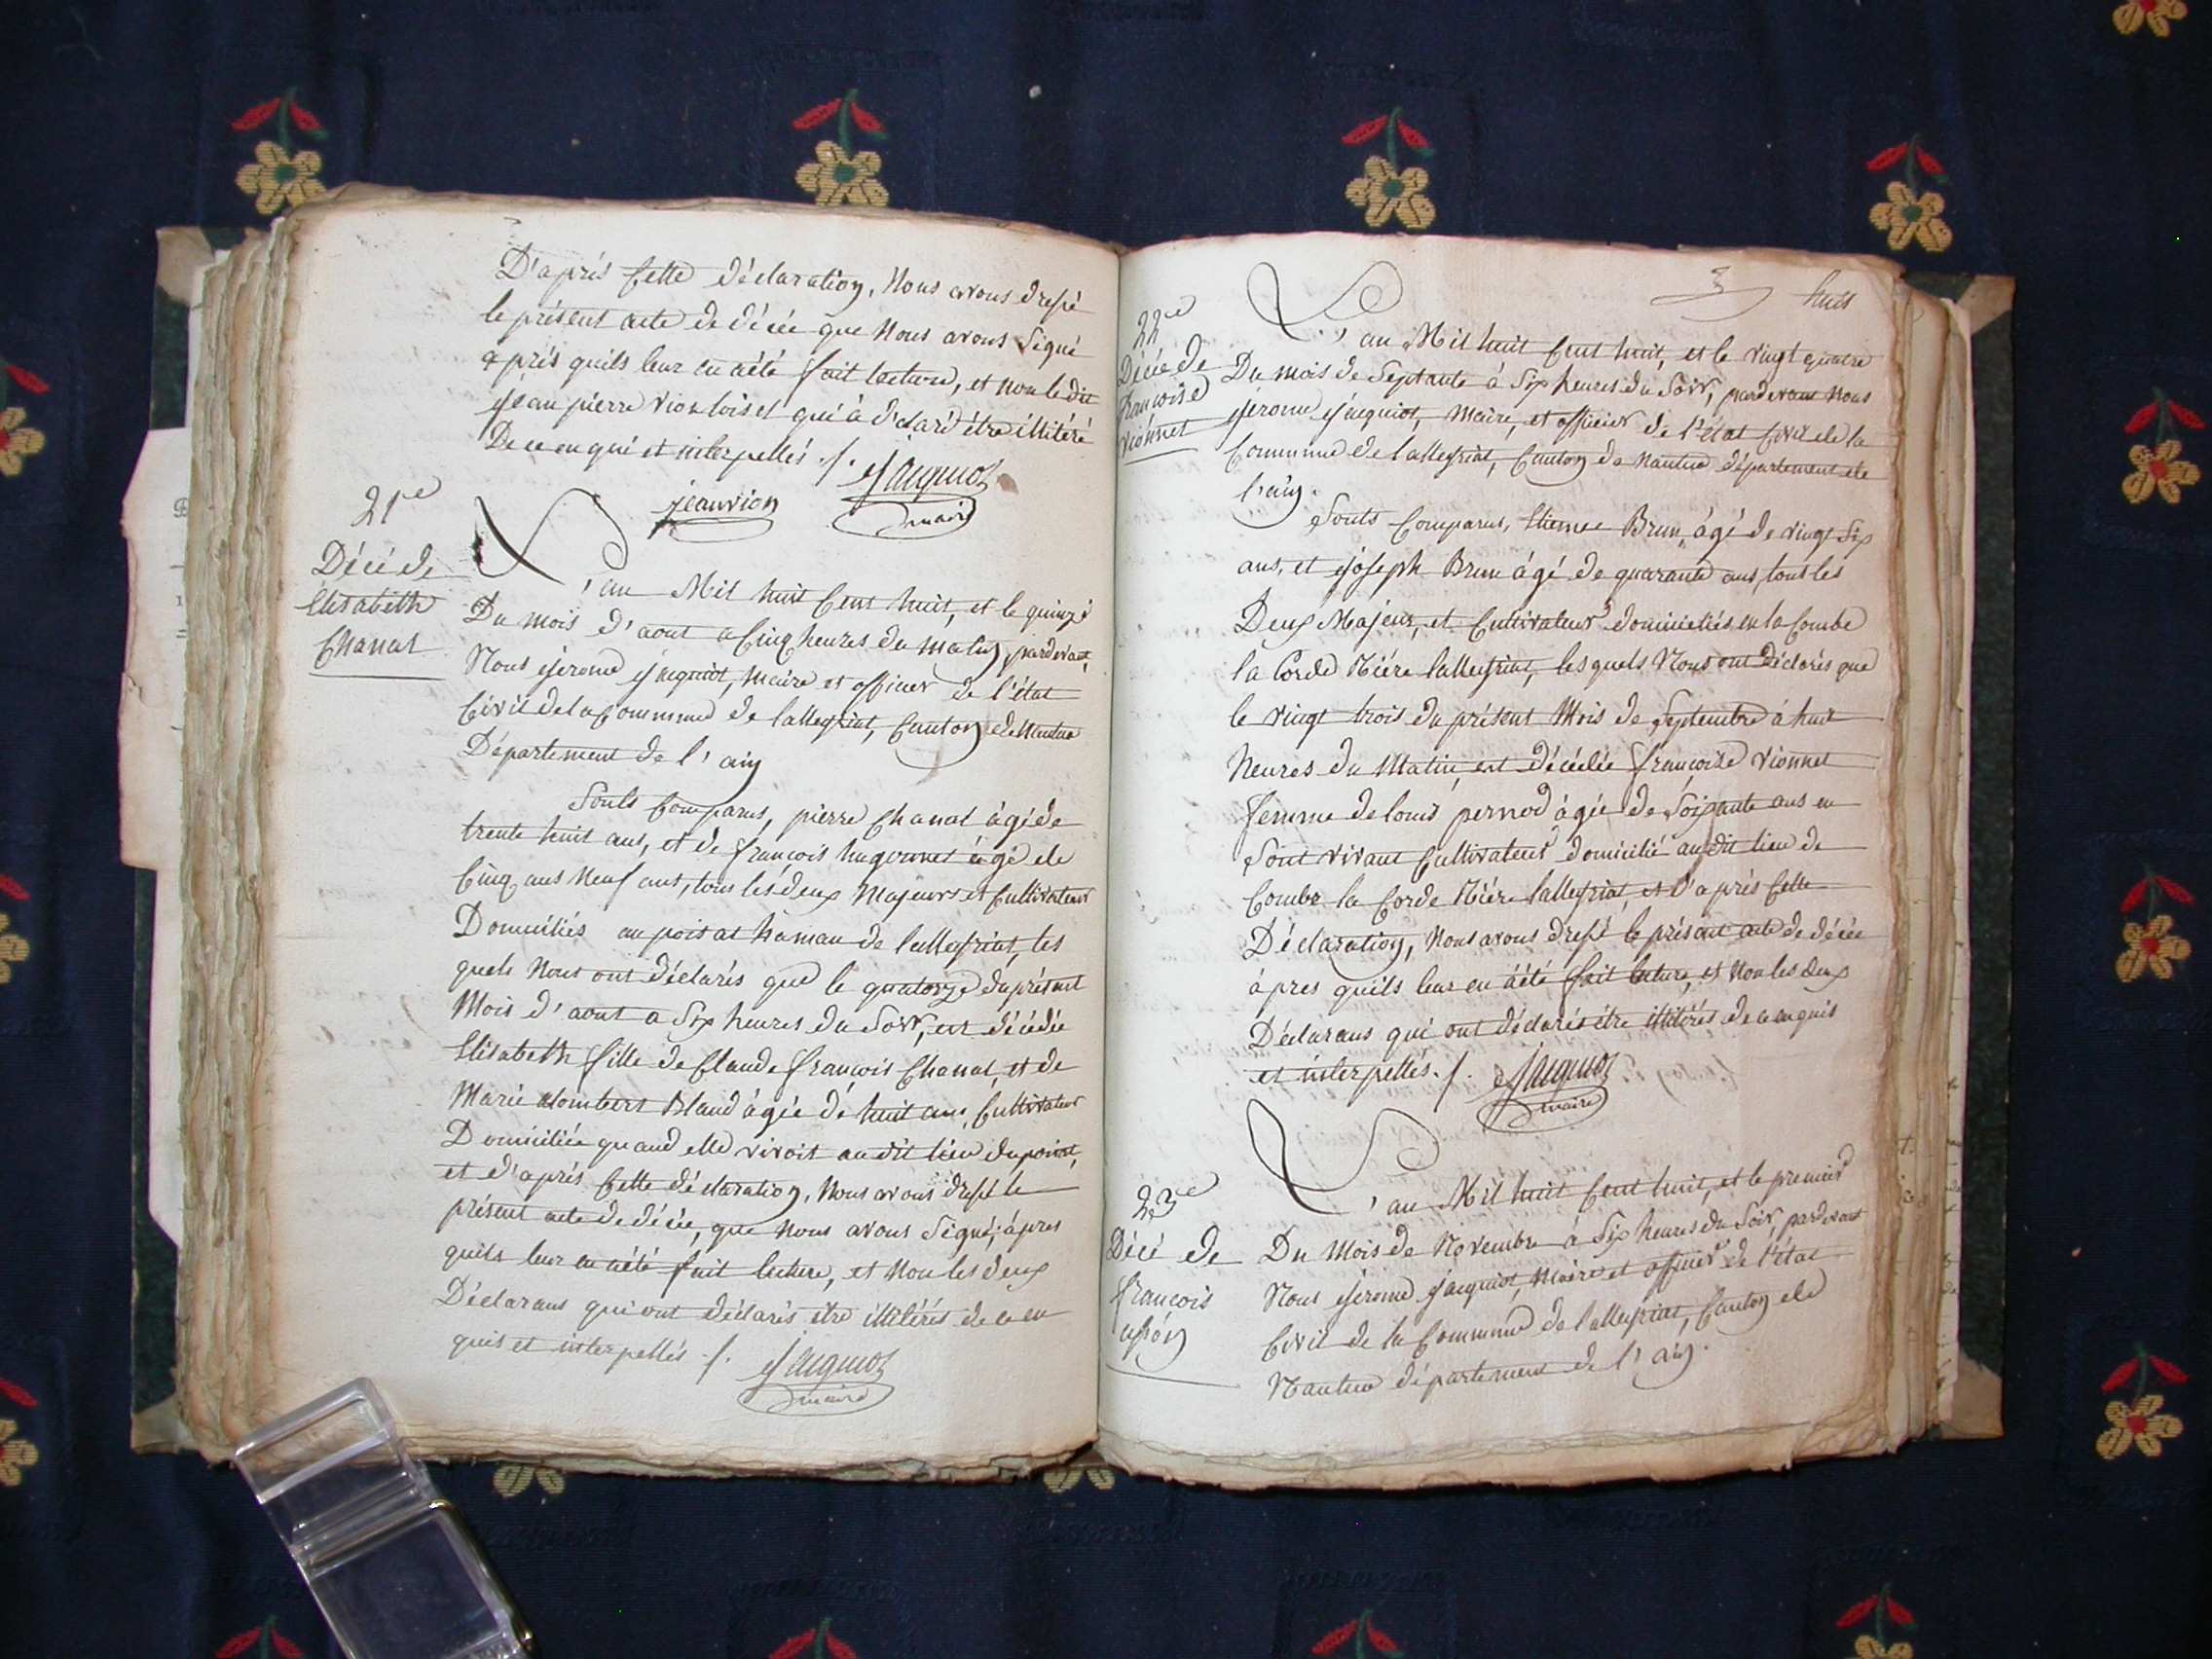 D'aprés Cette déclaration, Nous avons dressé
le présent acte de décée que Nous avons Signé
aprés quils leur en a été fait lecture, et non le dit
jean pierre Vion loiset qui à déclaré être illitéré
De ce enqui et interpellés ./. Jacquiot
jeanvion maire
21e
Décé de
Elisabeth
Chanat
L'an Mil huit Cent huit, et le quinze
Du mois d'aout a Cinq heures du matin, pardevant,
Nous jerome jacquiot, maire et officier de l'état
Civil de la Commune de lalleyriat, Canton de Nantua
Département de l'ain
Sonts Comparus, pierre Chanat àgé de
trente huit ans, et de françois hugonnet àgé de
Cinq ans Neuf ans, tous les deux Majeurs et Cultivateur
Domiciliés au poisat hamau de lalleyriat, les
quels Nous ont déclarés que le quatorze du présent
Mois d'aout a Six heures du Soir, est décédée
Elisabeth fille de Claude françois Chanat, et de
Marie Bland àgée de huit ans, Cultivateur
Domiciliée quand elle vivoit au dit lieu du poisat,
et d'aprés Cette déclaration, Nous avons dressé le
présent acte de décée, que Nous avons Signé, àpres
quils leur en a été fait lecture, et Non les deux
Déclarans qui ont déclarés être illitérés de ce en
quis et interpellés ./. Jacquiot
maire
huit
22e
Décée de
francoise
vionnet
L'an Mil huit Cent huit, et le vingt quatre
Du mois de Septante à Six heures du Soir, pardevant Nous
jerome jacquiot, maire, et officier de l'état Civil de la
Commune de lalleyriat, Canton de Nantua département de
l'ain.
Sonts Comparus, Etienne Brun, àgé de vingt Six
ans, et joseph Brun àgé de quarante ans, tous les
Deux Majeur, et Cultivateur domiciliés en la Combe
la Corde Riére lalleyriat, lesquels Nous ont Déclarés que
le vingt trois du présent Mois de Septembre à huit
heures du Matin, est décédée françoise vionnet
femme de louis pernod àgée de Soixante ans en
Sont vivant Cultivateur domicilié au dit lieu de
Combe la Corde Riére lalleyriat, et D'aprés Cette
Déclaration, Nous avons dressé le présent acte de décée
àpres quils leur en à été fait lecture, et Non les deux
Déclarans qui ont déclarés être illitérés de ce enquis
et interpellés ./. Jacquiot
maire
23e
Décé de
françois
L'an Mil huit Cent huit, et le premier
Du Mois de Novembre à Six heures du Soir, pardevant
Nous jerome jacquiot, Maire et officier de l'état
Civil de la Commune de lalleyriat, Canton de
Nantua département de l'ain.